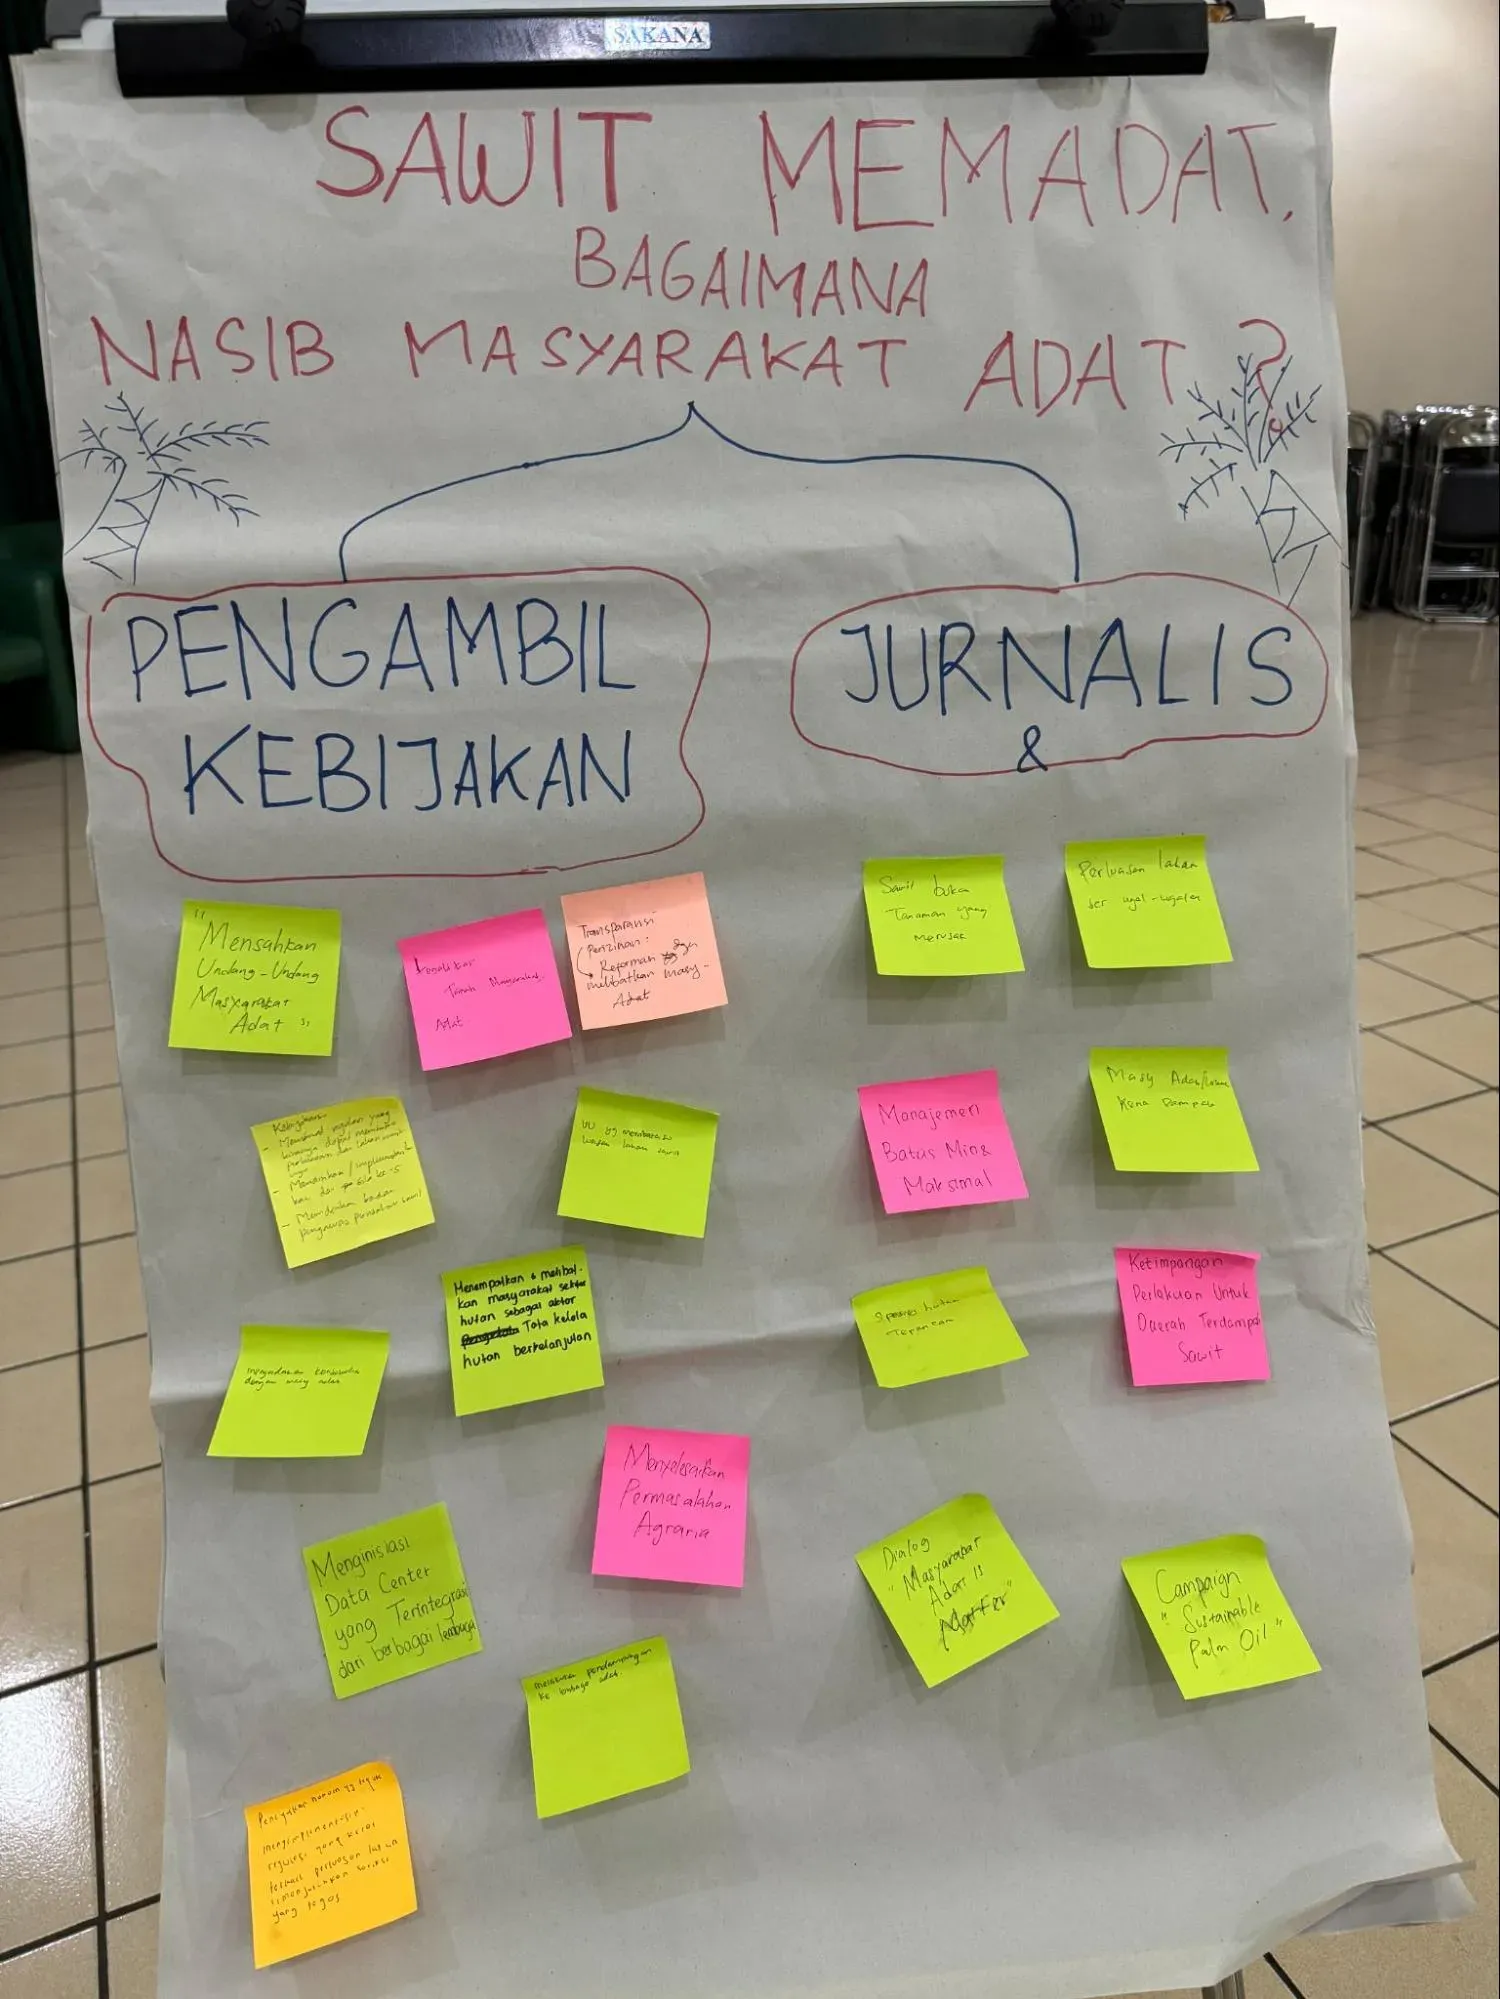 SAKANA
SAWIT MEMADAT.
BAGAIMANA
NASIB MASYARAKAT ADAT ?
PENGAMBIL
KEBIJAKAN
"Mensahkan
Undang-Undang
Masyarakat
Adat"
Tanah Masyarakat
Adat
Transparansi
Perizinan:
Reforman dgn
melibatkan masy-
Adat
Kebijakan
- Membuat regulasi yang
UU yg membatasi
Menempatkan & melibat-
kan masyarakat sekitar
hutan sebagai aktor
Tata kelola
hutan berkelanjutan
dengan masy adat
Menyelesaikan
Permasalahan
Agraria
Menginisiasi
Data Center
yang Terintegrasi
dari berbagai lembaga
melakukan pendampingan
ke lembaga adat.
regulasi yang keras
terkait perluasan lahan
yang tegas
JURNALIS
&
Sawit buka
Tanaman yang
merusak
Perluasan lahan
ser ugal-ugalan
Manajemen
Batas Min &
Maksimal
Masy Adat
Kena Dampak
Spesies hutan
Terancam
Ketimpangan
Perlakuan Untuk
Daerah Terdampak
Sawit
Dialog
"Masyarakat
Adat is
Matter"
Campaign
"Sustainable
Palm Oil"